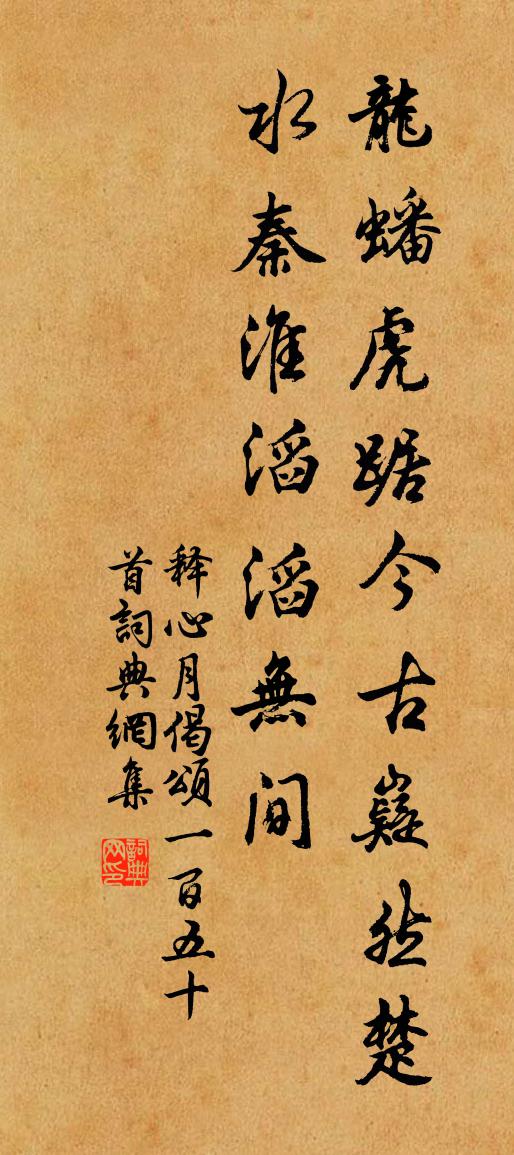 龍蟠虎踞今古嶷然楚
水秦淮滔滔無間
释心月偈頌一百五十
首詞典網集
詞典网印